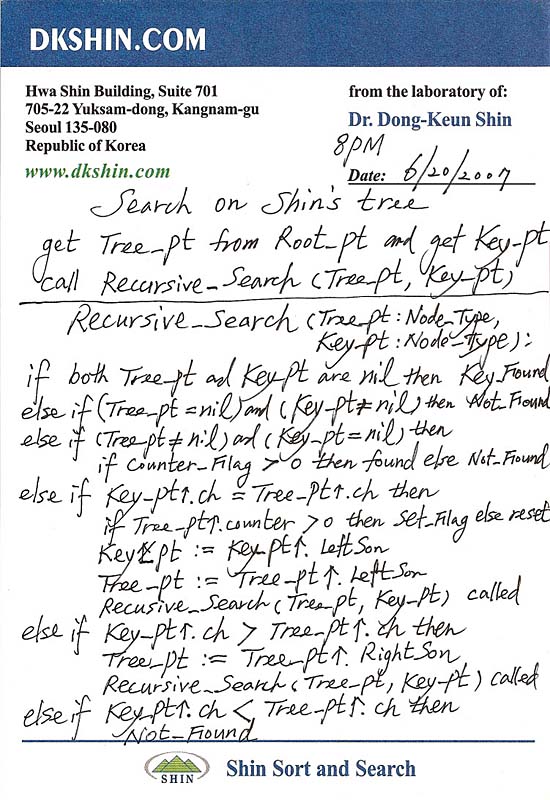 DKSHIN.COM
Hwa Shin Building, Suite 701
705-22 Yuksam-dong, Kangnam-gu
Seoul 135-080
Republic of Korea
www.dkshin.com
from the laboratory of:
Dr. Dong-Keun Shin
8PM
Date: 6/20/2007
Search on Shin's tree
get Tree_pt from Root_pt and get Key_pt
call Recursive_Search (Tree_pt, Key_pt)
Recursive_Search (Tree_pt : Node_Type,
Key_pt : Node_Type);
if both Tree_pt ad Key_pt are nil then Key_Found
else if (Tree_pt = nil) and (Key_pt ≠ nil) then Not_Found
else if (Tree_pt ≠ nil) ad (Key_pt = nil) then
if Counter_Flag > 0 then found else Not_Found
else if Key_pt↑.ch = Tree_pt↑.ch then
if Tree_pt↑.counter > 0 then Set_Flag else reset
Key_pt := Key_pt↑. LeftSon
Tree_pt := Tree_pt↑. LeftSon
Recusive_Search (Tree_pt, Key_pt) called
else if Key_pt↑.ch > Tree_pt↑.ch then
Tree_pt := Tree_pt↑. RightSon
Recursive_Search (Tree_pt, Key_pt) called
else if Key_pt↑.ch < Tree_pt↑.ch then
Not_Found
SHIN
Shin Sort and Search